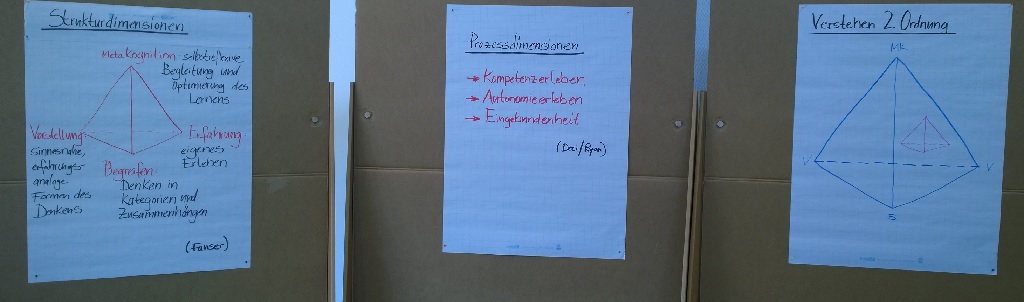 Strukturdimensionen
Metakognition: selbstreflexive
Begleitung und
Optimierung des
Lernens
Vorstellung:
sinnesnahe,
erfahrungs-
analoge
Formen des
Denkens
Erfahrung
eigenes
Erleben
Begreifen:
Denken in
Kategorien und
Zusammenhängen
Prozessdimensionen
→ Kompetenzerleben,
→ Autonomieerleben
→ Eingebundenheit
Verstehen 2. Ordnung
MK
V
V